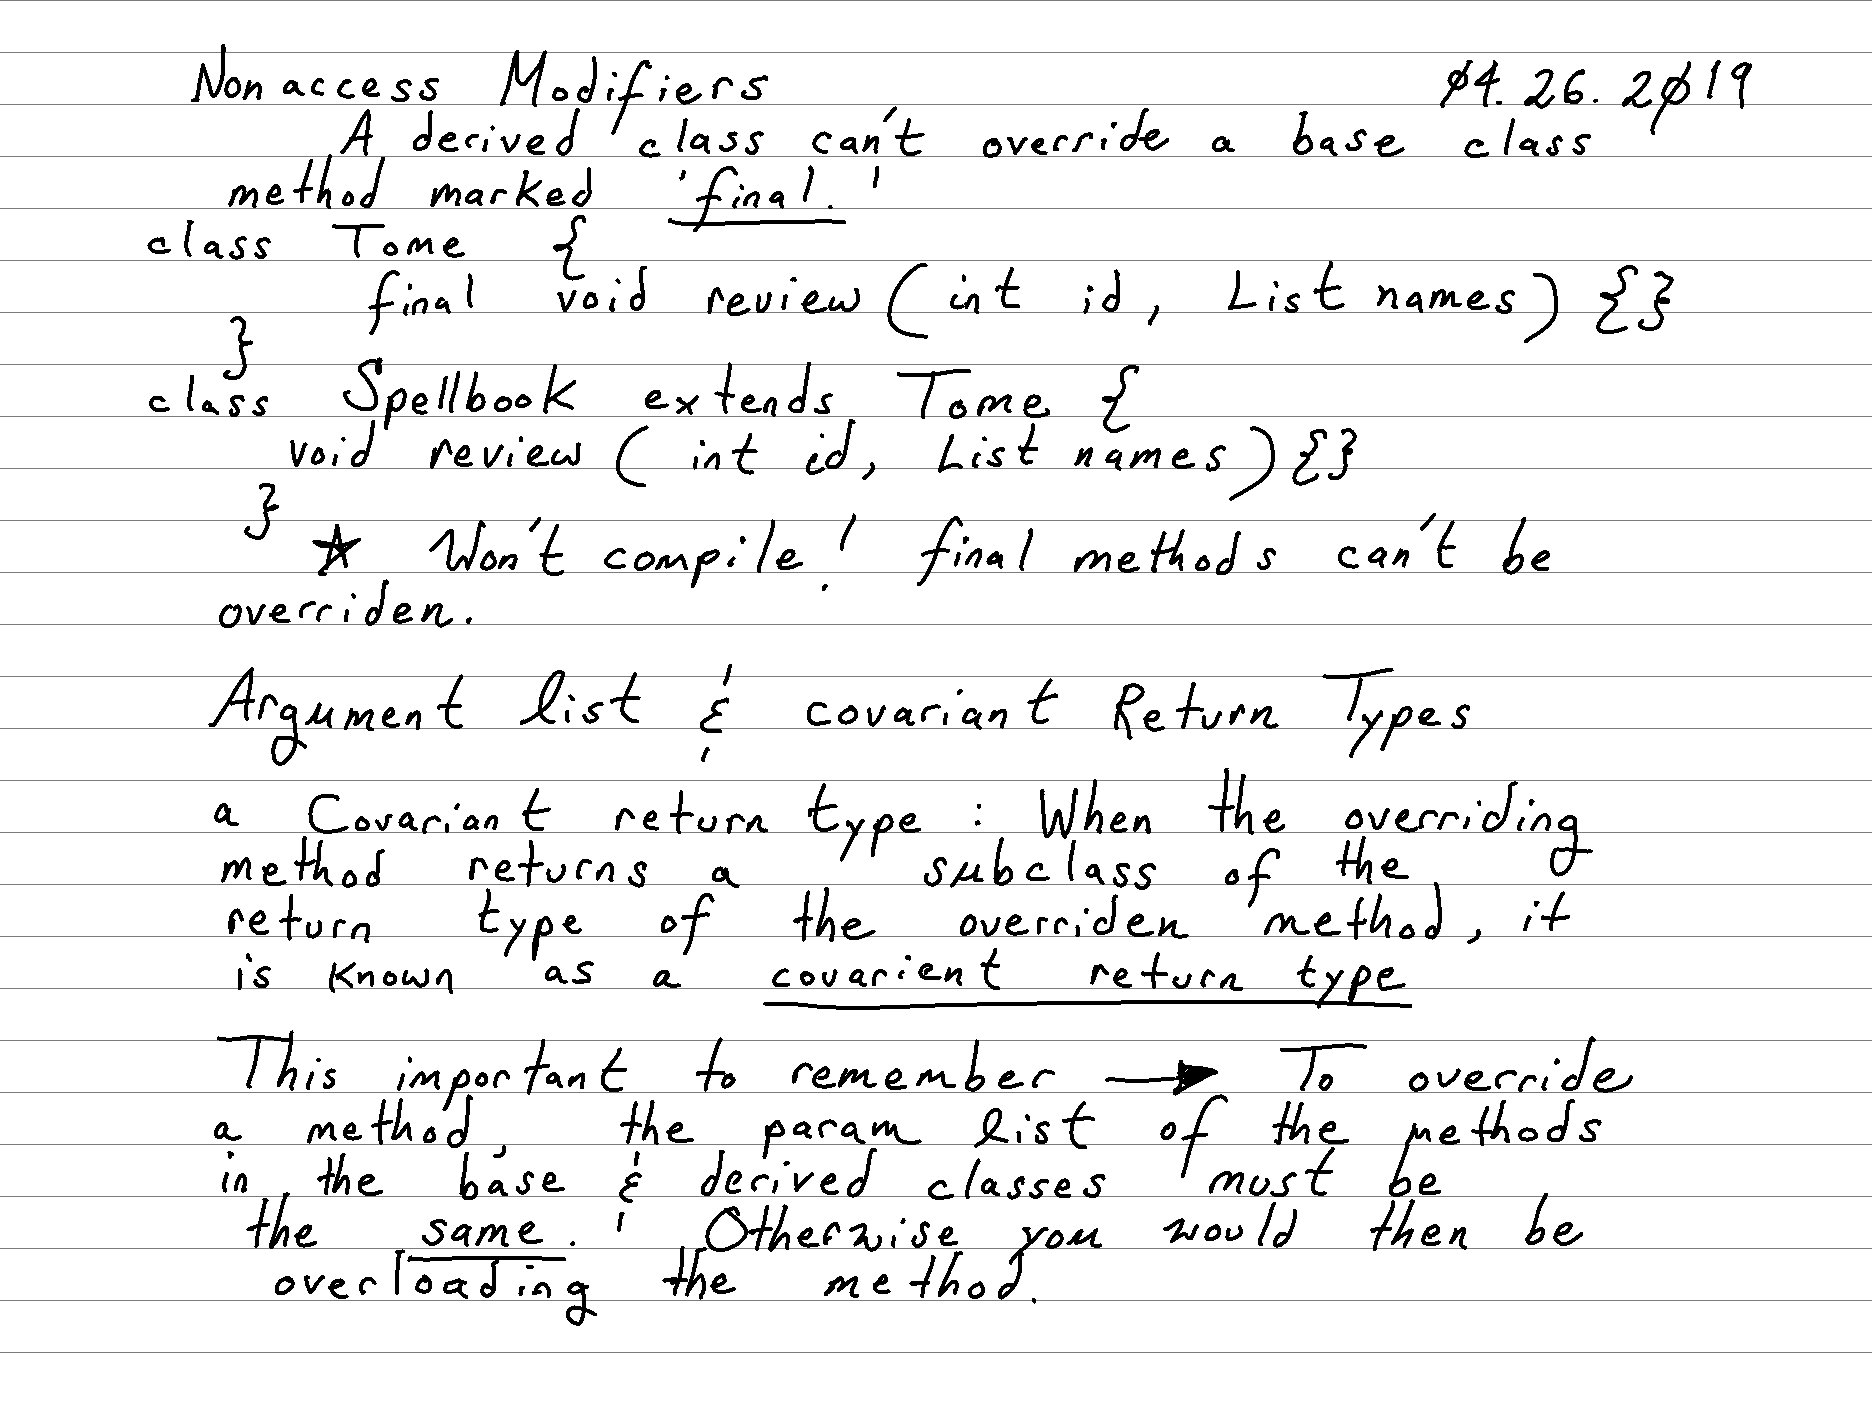 Nonaccess Modifiers 04.26.2019
A derived class can't override a base class
method marked 'final.'
class Tome {
final void review (int id, List names) {}
}
class Spellbook extends Tome {
void review ( int id, List names) {}
}
★ Won't compile! final methods can't be
overriden.
Argument list & covariant Return Types
a Covariant return type : When the overriding
method returns a subclass of the
return type of the overriden method, it
is known as a covarient return type
This important to remember → To override
a method, the param list of the methods
in the base & derived classes must be
the same. Otherwise you would then be
overloading the method.